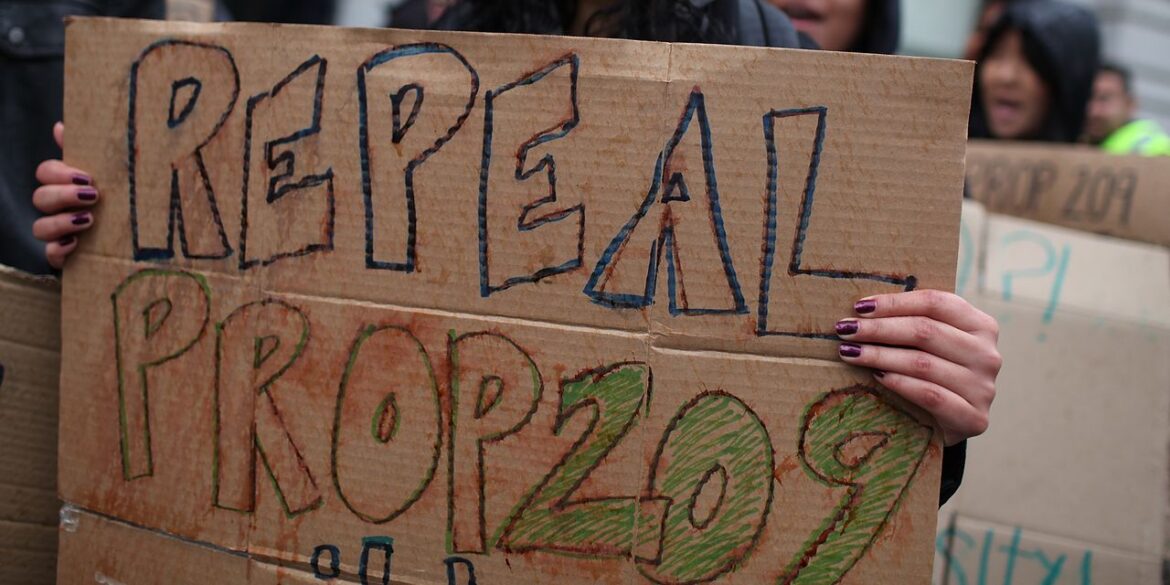 REPEAL
PROP 209
PROP 209
?!
sity!